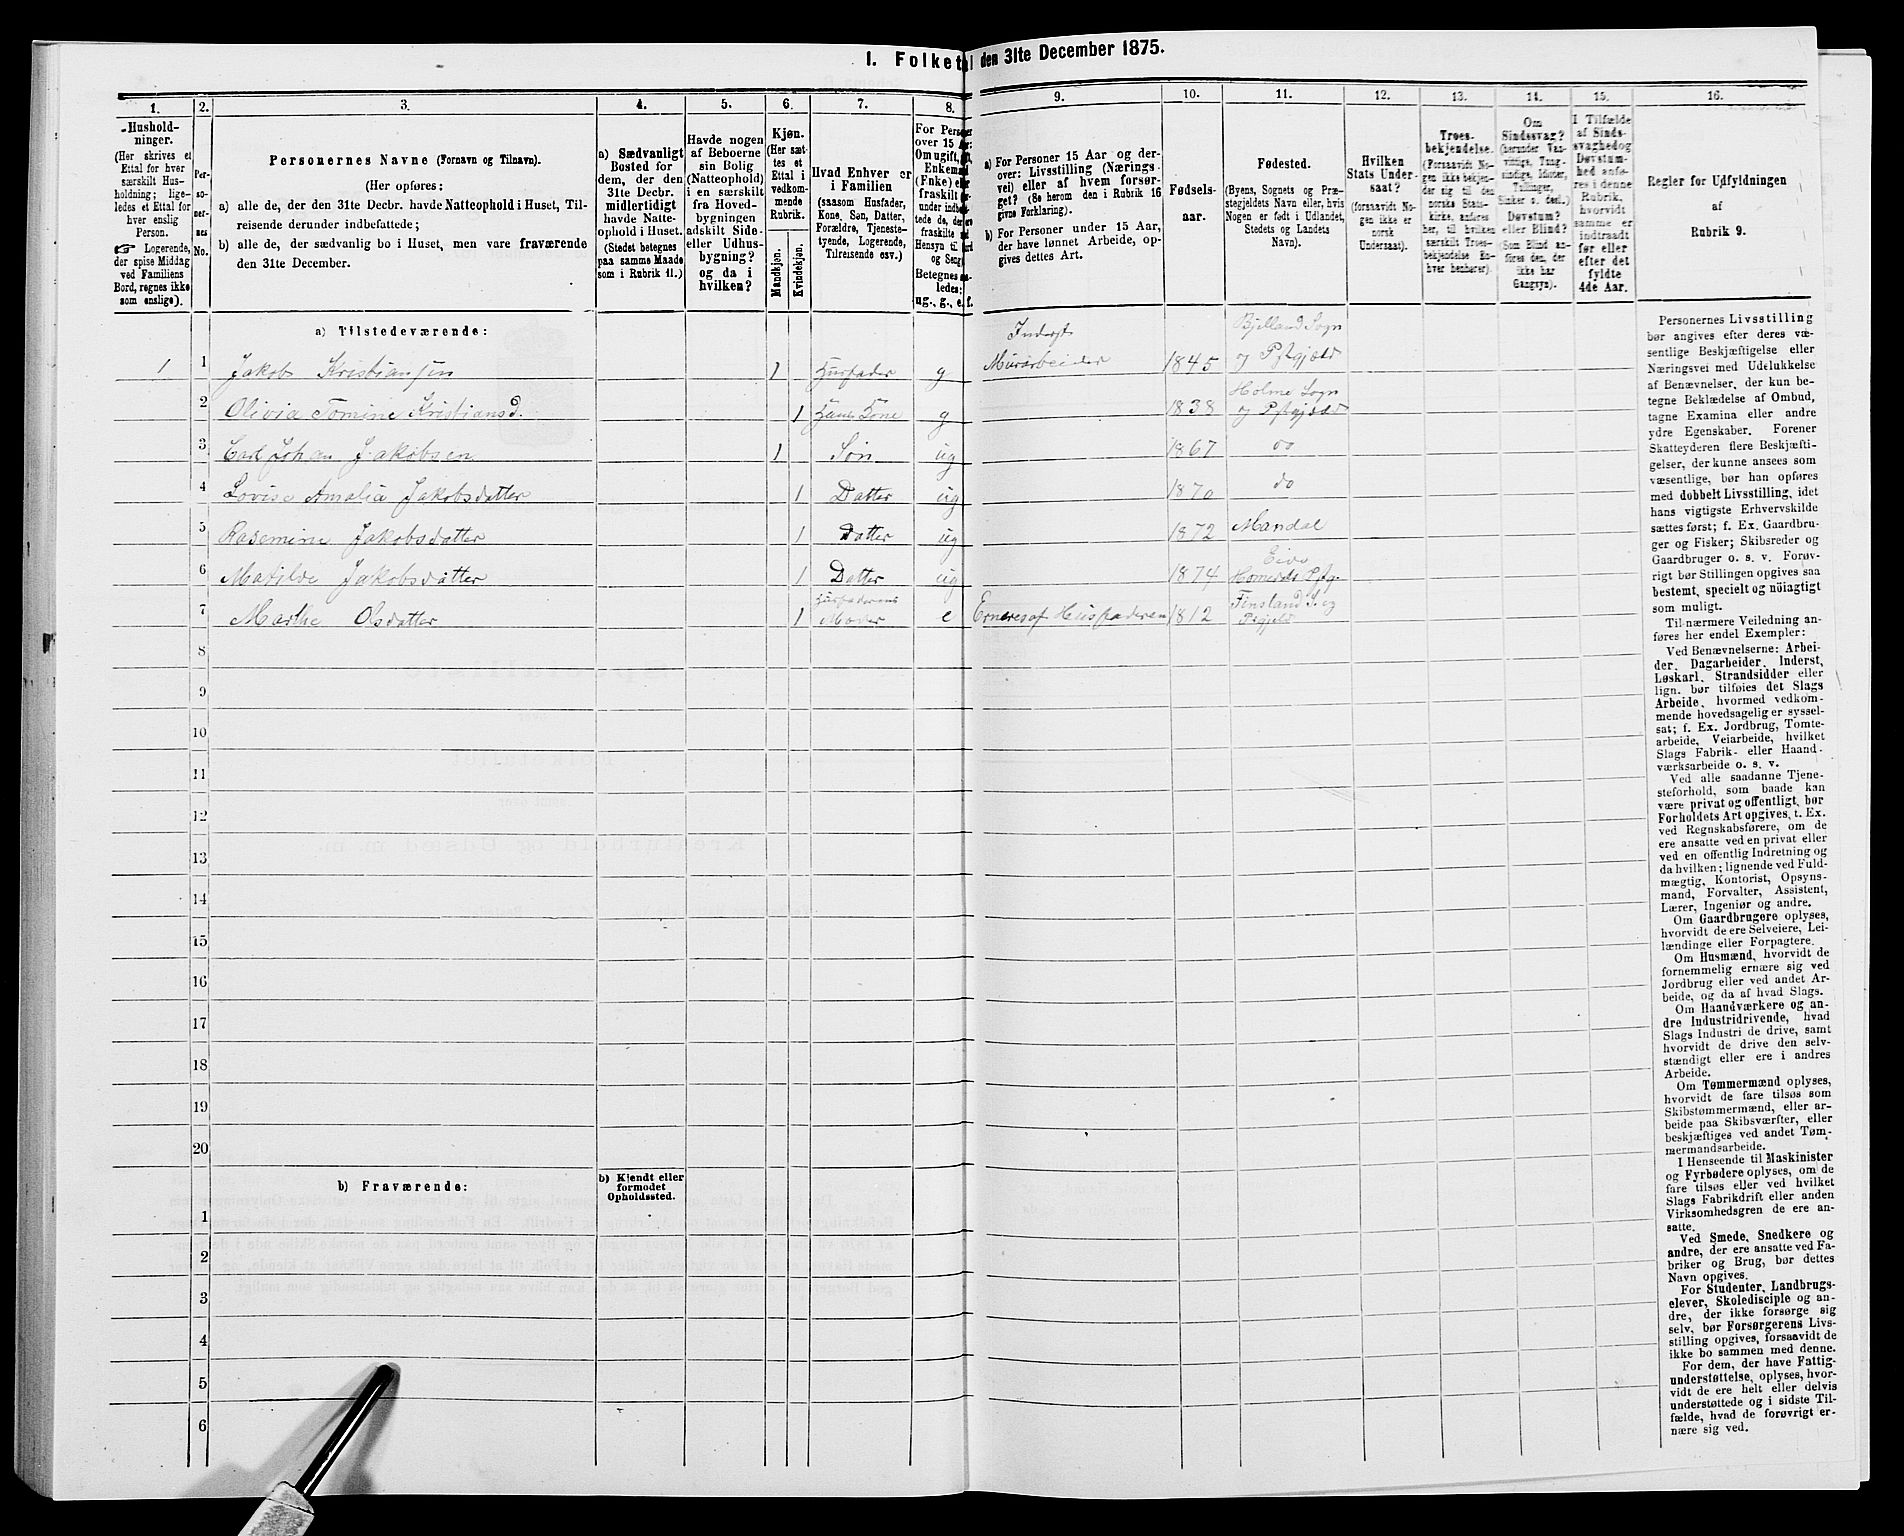 I. Folketal den 31te December 1875.
1.
2.
3.
4.
5.
6.
7.
8.
9.
10.
11.
12.
13.
14.
15.
16.
Hushold-
ninger.
(Her skrives et
Ettal for hver
særskilt Hus-
holdning; lige-
ledes et Ettal for
hver enslig
Person.
☞ Logerende,
der spise Middag
ved Familiens
Bord, regnes ikke
som enslige).
Per-
so-
ner-
nes
No.
Personernes Navne (Fornavn og Tilnavn).
(Her opføres:
a) alle de, der den 31te Decbr. havde Natteophold i Huset, Til-
reisende derunder indbefattede;
b) alle de, der sædvanlig bo i Huset, men vare fraværende
den 31te December.
a) Sædvanligt
Bosted for
dem, der den
31te Decbr.
midlertidigt
havde Natte-
ophold i Huset.
(Stedet betegnes
paa samme Maade
som i Rubrik 11.)
Havde nogen
af Beboerne
sin Bolig
(Natteophold)
i en særskilt
fra Hoved-
bygningen
adskilt Side-
eller Udhus-
bygning?
og da i
hvilken?
Kjøn.
(Her sæt-
tes et
Ettal i
vedkom-
mende
Rubrik.
Mandkjøn.
Kvindekjøn.
Hvad Enhver er
i Familien
(saasom Husfader,
Kone, Søn, Datter,
Forældre, Tjeneste-
tyende, Logerende,
Tilreisende osv.)
For Person
over 15 Aar:
Om ugift,
Enkemand
(Enke) eller
fraskilt
Betegnes
ledes:
ug., g., e., f.
a) For Personer 15 Aar og der-
over: Livsstilling (Nærings-
vei) eller af hvem forsør-
get? (Se herom den i Rubrik 16
givne Forklaring).
b) For Personer under 15 Aar,
der have lønnet Arbeide, op-
gives dettes Art.
Fødsels-
aar.
Fødested.
(Byens, Sognets og Præ-
stegjeldets Navn eller, hvis
Nogen er født i Udlandet,
Stedets og Landets
Navn).
Hvilken
Stats Under-
saat?
(forsaavidt No-
gen ikke er
norsk
Undersaat).
Troes-
bekjendelse.
(Forsaavidt No-
gen ikke bekjen-
der sig til den
norske Stats-
kirke, anføres
her, til hvilken
særskilt Troes-
bekjendelse En-
hver henhører).
Om
Sindssvag?
(herunder Van-
vittige, Tung-
sindige, Idioter,
Tullinger,
Sinker o. desl.)
Døvstum?
eller Blind?
(Som Blind an-
føres den, der
ikke har
Gangsyn).
I Tilfælde
af Sinds-
svaghed og
Døvstum-
hed anfø-
res i denne
Rubrik,
hvorvidt
samme er
indtraadt
før eller
efter det
fyldte
4de Aar.
Regler for Udfyldningen
af
Rubrik 9.
a) Tilstedeværende:
1 1 Jakob Kristiansen 1 Husfader g Inderst Murarbeider 1845 Bjelland Sogn og Pstgjæld
2 Olivia Tomine Kristiansd. 1 Hans Kone g 1838 Holme Sogn og Pstgjæld
3 Carl Johan Jakobsen 1 Søn ug 1867 do
4 Lovise Amalia Jakobsdatter 1 Datter ug 1870 do
5 Rasemine Jakobsdatter 1 Datter ug 1872 Mandal
6 Matilde Jakobsdatter 1 Datter ug 1874
7 Marthe Olsdatter 1 Husfaderens Moder e Erneres af Husfaderen 1812 Finsland S. og Pstgjeld
8
9
10
11
12
13
14
15
16
17
18
19
20
b) Fraværende:
b) Kjendt eller
formodet
Opholdssted.
1
2
3
4
5
6
Personernes Livsstilling
bør angives efter deres væ-
sentlige Beskjæftigelse eller
Næringsvei med Udelukkelse
af Benævnelser, der kun be-
tegne Beklædelse af Ombud,
tagne Examina eller andre
ydre Egenskaber. Forener
Skatteyderen flere Beskjæfti-
gelser, der kunne ansees som
væsentlige, bør han opføres
med dobbelt Livsstilling, idet
hans vigtigste Erhvervskilde
sættes først; f. Ex. Gaardbru-
ger og Fisker; Skibsreder og
Gaardbruger o. s. v. Forøv-
rigt bør Stillingen opgives saa
bestemt, specielt og nöiagtigt
som muligt.
Til nærmere Veiledning an-
føres her endel Exempler:
Ved Benævnelserne: Arbei-
der, Dagarbeider, Inderst,
Løskarl, Strandsidder eller
lign. bør tilføies det Slags
Arbeide, hvormed vedkom-
mende hovedsagelig er syssel-
sat; f. Ex. Jordbrug, Tomte-
arbeide, Veiarbeide, hvilket
Slags Fabrik- eller Haand-
værksarbeide o. s. v.
Ved alle saadanne Tjene-
steforhold, som baade kan
være privat og offentligt, bør
Forholdets Art opgives, t. Ex.
ved Regnskabsførere, om de
ere ansatte ved en privat eller
ved en offentlig Indretning og
da hvilken; lignende ved Fuld-
mægtig, Kontorist, Opsyns-
mand, Forvalter, Assistent,
Lærer, Ingeniør og andre.
Om Gaardbrugere oplyses,
hvorvidt de ere Selveiere, Lei-
lændinge eller Forpagtere.
Om Husmænd, hvorvidt de
fornemmelig ernære sig ved
Jordbrug eller ved andet Ar-
beide, og da af hvad Slags.
Om Haandværkere og an-
dre Industridrivende, hvad
Slags Industri de drive, samt
hvorvidt de drive den selv-
stændigt eller ere i andres
Arbeide.
Om Tømmermænd oplyses,
hvorvidt de fare tilsøs som
Skibstømmermænd, eller ar-
beide paa Skibsværfter, eller
beskjæftiges ved andet Tøm-
mermandsarbeide.
I Henseende til Maskinister
og Fyrbødere oplyses, om de
fare tilsøs eller ved hvilket
Slags Fabrikdrift eller anden
Virksomhedsgren de ere an-
satte.
Ved Smede, Snedkere og
andre, der ere ansatte ved Fa-
briker og Brug, bør dettes
Navn opgives.
For Studenter, Landbrugs-
elever, Skoledisciple og an-
dre, der ikke forsørge sig
selv, bør Forsørgerens Livs-
stilling opgives, forsaavidt de
ikke bo sammen med denne.
For dem, der have Fattig-
understøttelse, oplyses, hvor-
vidt de ere helt eller delvis
understøttede og i sidste Til-
fælde, hvad de forøvrigt er-
nære sig ved.